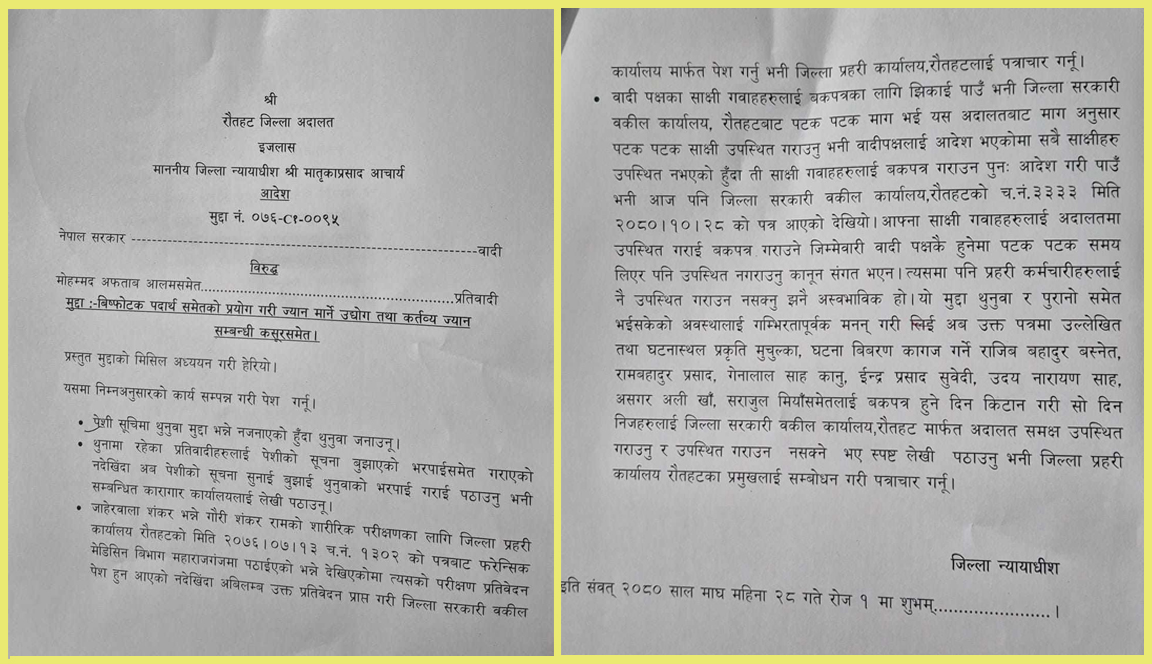 श्री
रौतहट जिल्ला अदालत
इजलास
माननीय जिल्ला न्यायाधीश श्री मातृकाप्रसाद आचार्य
आदेश
मुद्दा नं. ०७६-C१-००९५
नेपाल सरकार ------------------------------------------------वादी
विरुद्ध
मोहम्मद अफताब आलमसमेत................................................प्रतिवादी
मुद्दा :-बिष्फोटक पदार्थ समेतको प्रयोग गरी ज्यान मार्ने उद्योग तथा कर्तव्य ज्यान
सम्बन्धी कसूरसमेत।
प्रस्तुत मुद्दाको मिसिल अध्ययन गरी हेरियो।
यसमा निम्नअनुसारको कार्य सम्पन्न गरी पेश गर्नू।
• पेशी सूचिमा थुनुवा मुद्दा भन्ने नजनाएको हुँदा थुनुवा जनाउनू।
• थुनामा रहेका प्रतिवादीहरुलाई पेशीको सूचना बुझाएको भरपाईसमेत गराएको
नदेखिंदा अब पेशीको सूचना सुनाई बुझाई थुनुवाको भरपाई गराई पठाउनु भनी
सम्बन्धित कारागार कार्यालयलाई लेखी पठाउनू।
• जाहेरवाला शंकर भन्ने गौरी शंकर रामको शारीरिक परीक्षणका लागि जिल्ला प्रहरी
कार्यालय रौतहटको मिति २०७६।०७।१३ च.नं. १३०२ को पत्रबाट फरेन्सिक
मेडिसिन विभाग महाराजगंजमा पठाईएको भन्ने देखिएकोमा त्यसको परीक्षण प्रतिवेदन
पेश हुन आएको नदेखिंदा अबिलम्ब उक्त प्रतिवेदन प्राप्त गरी जिल्ला सरकारी वकील
कार्यालय मार्फत पेश गर्नु भनी जिल्ला प्रहरी कार्यालय,रौतहटलाई पत्राचार गर्नू।
• वादी पक्षका साक्षी गवाहहरुलाई बकपत्रका लागि झिकाई पाउँ भनी जिल्ला सरकारी
वकील कार्यालय, रौतहटबाट पटक पटक माग भई यस अदालतबाट माग अनुसार
पटक पटक साक्षी उपस्थित गराउनु भनी वादीपक्षलाई आदेश भएकोमा सबै साक्षीहरु
उपस्थित नभएको हुँदा ती साक्षी गवाहहरुलाई बकपत्र गराउन पुनः आदेश गरी पाउँ
भनी आज पनि जिल्ला सरकारी वकील कार्यालय,रौतहटको च.नं.३३३३ मिति
२०८०।१०।२८ को पत्र आएको देखियो। आफ्ना साक्षी गवाहहरुलाई अदालतमा
उपस्थित गराई बकपत्र गराउने जिम्मेवारी वादी पक्षकै हुनेमा पटक पटक समय
लिएर पनि उपस्थित नगराउनु कानून संगत भएन। त्यसमा पनि प्रहरी कर्मचारीहरुलाई
नै उपस्थित गराउन नसक्नु झनै अस्वभाविक हो। यो मुद्दा थुनुवा र पुरानो समेत
भईसकेको अवस्थालाई गम्भिरतापूर्वक मनन् गरी लिई अब उक्त पत्रमा उल्लेखित
तथा घटनास्थल प्रकृति मुचुल्का, घटना बिबरण कागज गर्ने राजिब बहादुर बस्नेत,
रामबहादुर प्रसाद, गेनालाल साह कानु, ईन्द्र प्रसाद सुवेदी, उदय नारायण साह,
असगर अली खाँ, सराजुल मियाँसमेतलाई बकपत्र हुने दिन किटान गरी सो दिन
निजहरुलाई जिल्ला सरकारी वकील कार्यालय,रौतहट मार्फत अदालत समक्ष उपस्थित
गराउनु र उपस्थित गराउन नसक्ने भए स्पष्ट लेखी पठाउनु भनी जिल्ला प्रहरी
कार्यालय रौतहटका प्रमुखलाई सम्बोधन गरी पत्राचार गर्नू।
जिल्ला न्यायाधीश
इति संवत् २०८० साल माघ महिना २८ गते रोज १ मा शुभम्......................।